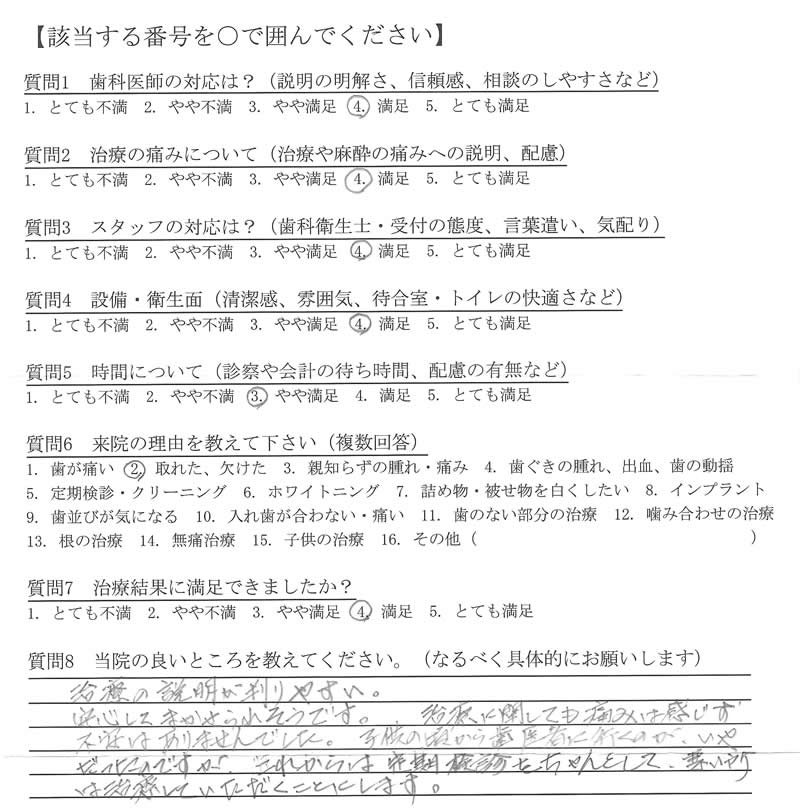 【該当する番号を〇で囲んでください】
質問1　歯科医師の対応は？（説明の明解さ、信頼感、相談のしやすさなど）
1. とても不満　2. やや不満　3. やや満足　4. 満足　5. とても満足
質問2　治療の痛みについて（治療や麻酔の痛みへの説明、配慮）
1. とても不満　2. やや不満　3. やや満足　4. 満足　5. とても満足
質問3　スタッフの対応は？（歯科衛生士・受付の態度、言葉遣い、気配り）
1. とても不満　2. やや不満　3. やや満足　4. 満足　5. とても満足
質問4　設備・衛生面（清潔感、雰囲気、待合室・トイレの快適さなど）
1. とても不満　2. やや不満　3. やや満足　4. 満足　5. とても満足
質問5　時間について（診察や会計の待ち時間、配慮の有無など）
1. とても不満　2. やや不満　3. やや満足　4. 満足　5. とても満足
質問6　来院の理由を教えて下さい（複数回答）
1. 歯が痛い　2. 取れた、欠けた　3. 親知らずの腫れ・痛み　4. 歯ぐきの腫れ、出血、歯の動揺
5. 定期検診・クリーニング　6. ホワイトニング　7. 詰め物・被せ物を白くしたい　8. インプラント
9. 歯並びが気になる　10. 入れ歯が合わない・痛い　11. 歯のない部分の治療　12. 噛み合わせの治療
13. 根の治療　14. 無痛治療　15. 子供の治療　16. その他（　　　　　　　　　　　　）
質問7　治療結果に満足できましたか？
1. とても不満　2. やや不満　3. やや満足　4. 満足　5. とても満足
質問8　当院の良いところを教えてください。（なるべく具体的にお願いします）
治療の説明が判りやすい。
安心してまかせられそうです。　治療に関しても痛みは感じず
不安はありませんでした。子供の頃から歯医者に行くのが、いや
だったのですが、これからは定期検診をちゃんとして、悪い所
は治療していただくことにします。